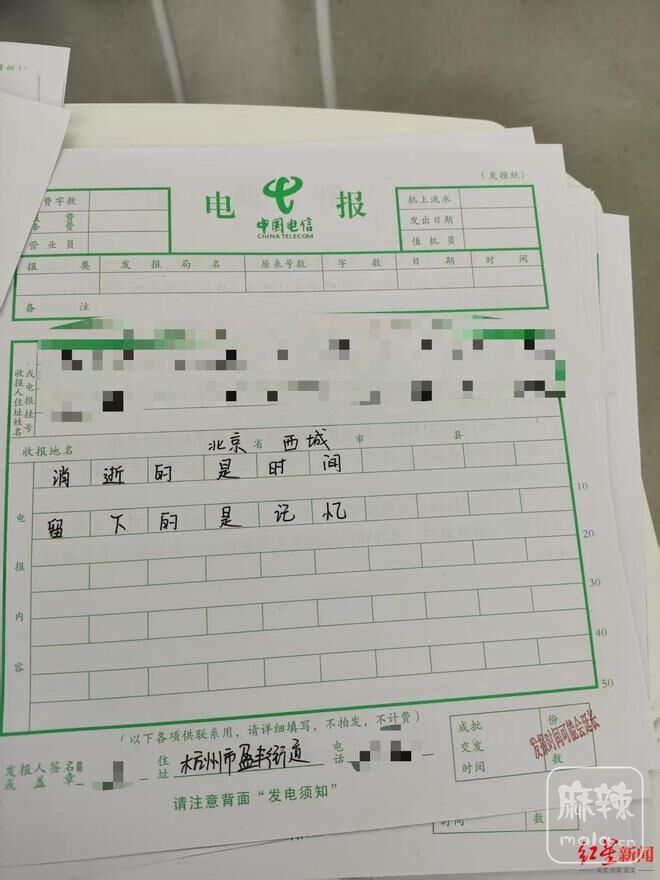 (发报纸)
费字数
机上流水
电 报
发出日期
中国电信
CHINA TELECOM
营业员
值机员
报类 发报局名 原来号数 字数 日期 时间
备注
收报人住址姓名
或电报挂号
收报地名 北京 省 西城 市 县
电报内容
消逝的是时间
10
留下的是记忆
20
30
40
50
(以下各项供联系用，请详细填写，不拍发，不计费)
发报人签名或盖章
住址 杭州市盈丰街道
电话
成批 份
交发
时间 数
发报时间可能会延长
请注意背面“发电须知”
时间 数
麻辣
mala.cn
红星新闻
深度 态度 温度